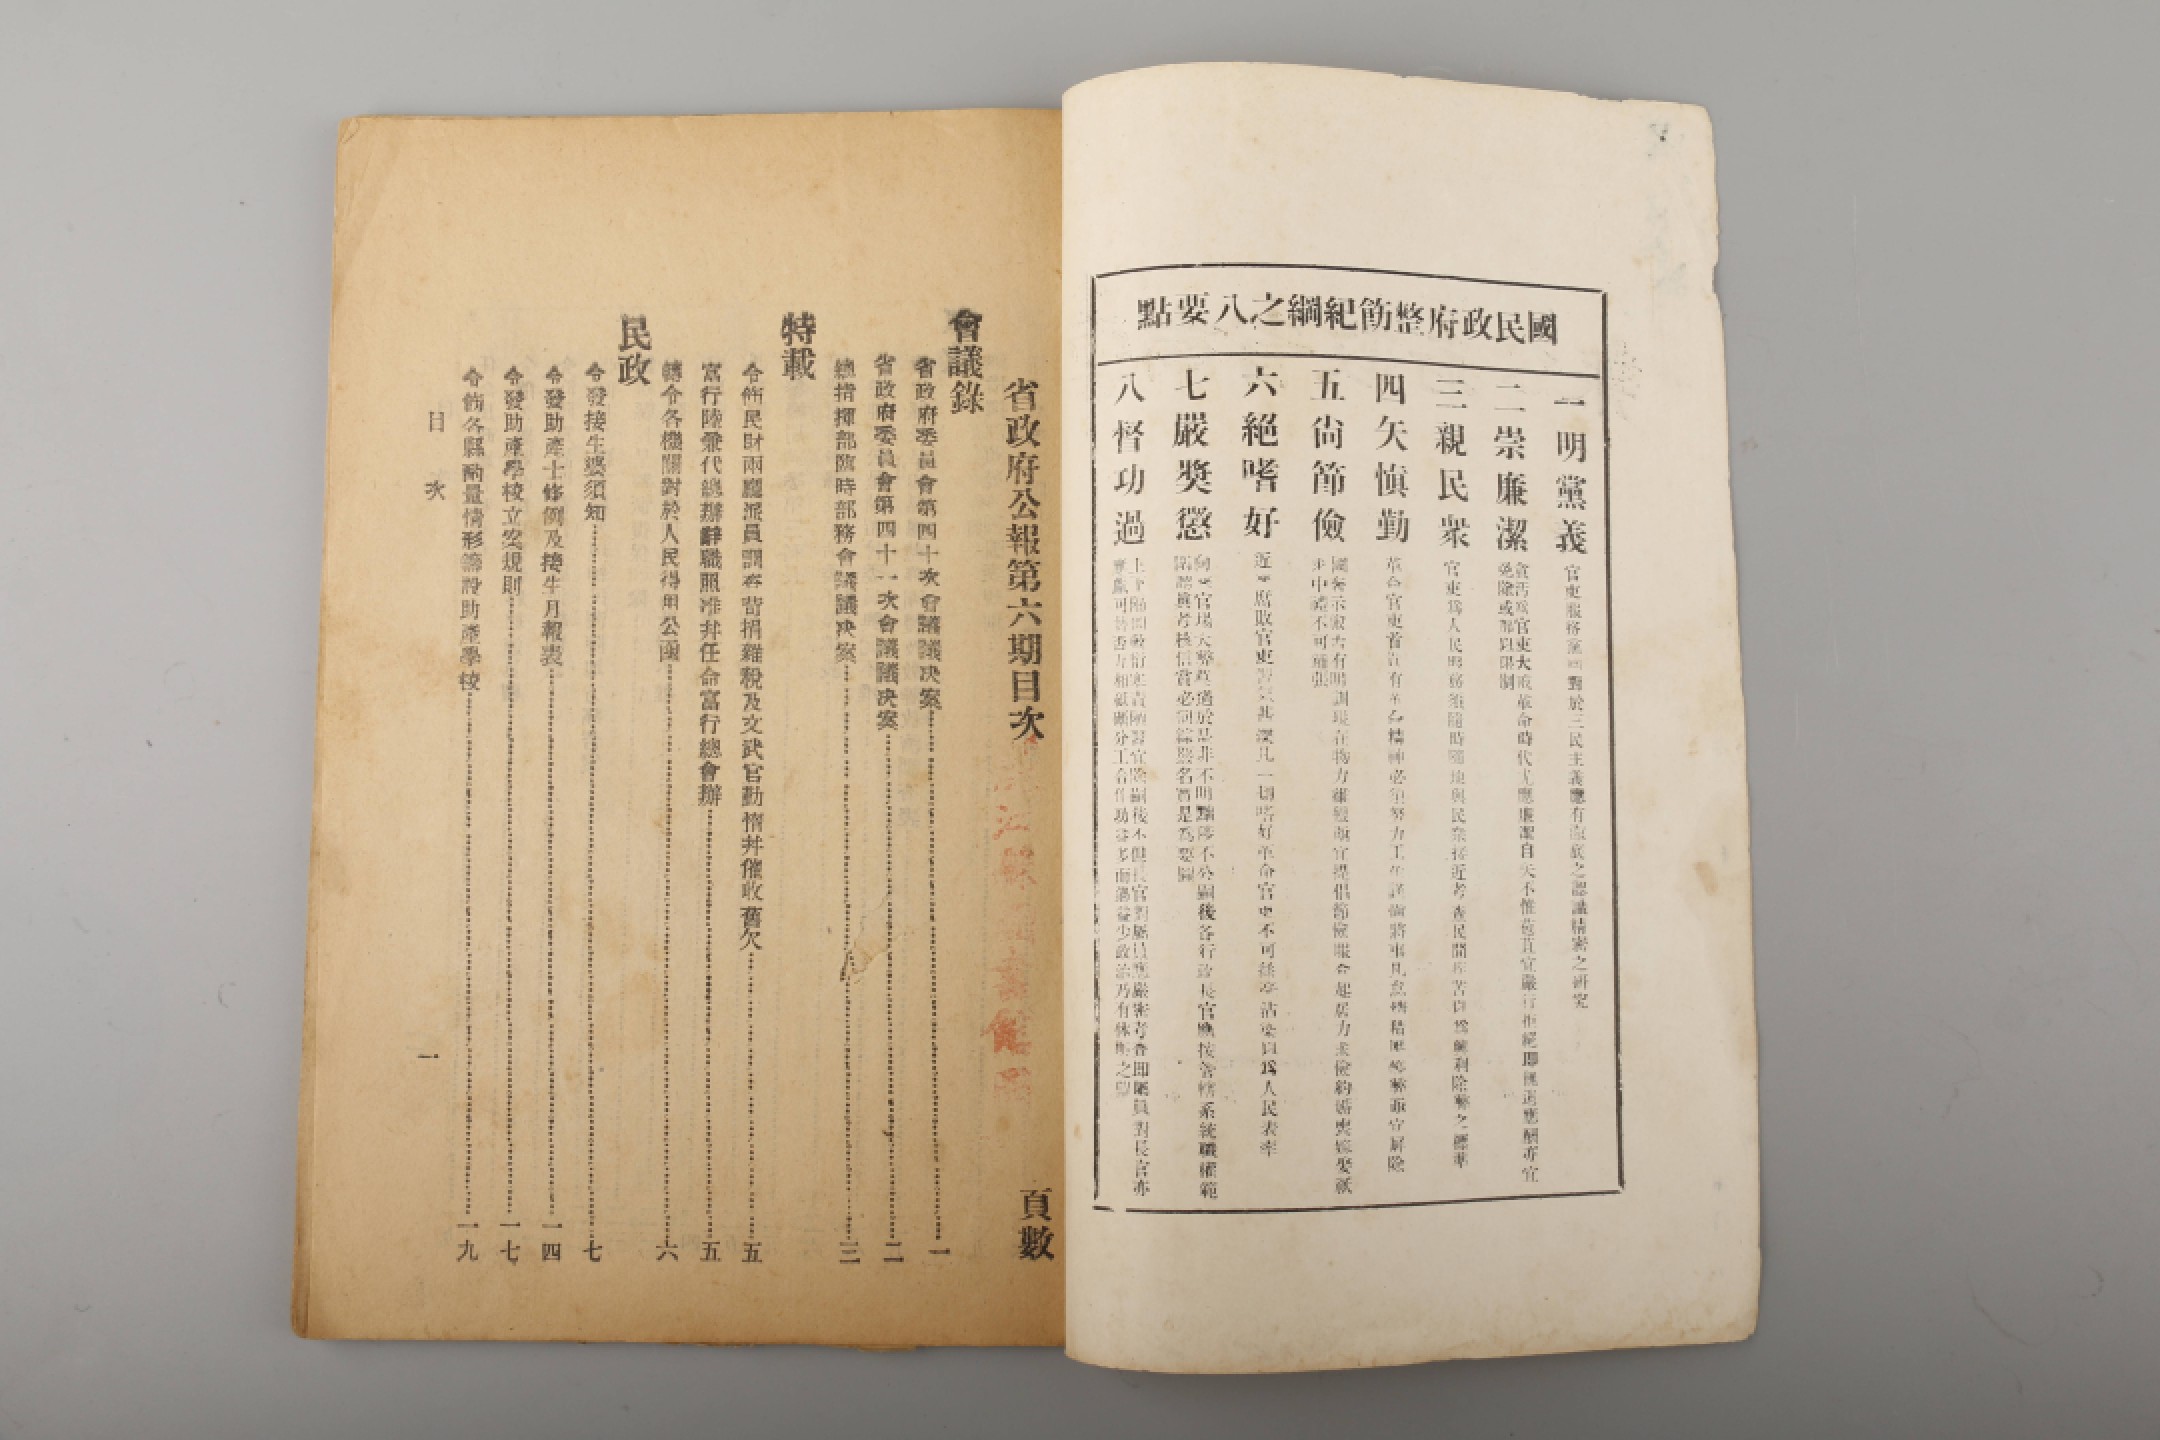 國民政府整飭紀綱之八要點
一明黨義
官吏服務黨國對於三民主義應有澈底之認識精密之研究
二崇廉潔
貪汚爲官吏大戒革命時代尤應廉潔自矢不惟苞苴宜嚴行拒絕即無謂應酬亦宜
免除或酌與限制
三親民衆
官吏爲人民服務須隨時隨地與民衆接近考查民間疾苦以爲興利除弊之標準
四矢愼勤
革命官吏首宜有革命精神必須努力工作謹愼將事凡怠惰積壓等弊亟宜屏除
五尙節儉
六絕嗜好
近來腐敗官吏習氣甚深凡一切嗜好革命官吏不可稍涉沾染以爲人民表率
七嚴奬懲
向來官場大弊莫過於是非不明黜陟不公嗣後各行政長官應按管轄系統職權範
圍認眞考核信賞必罰綜覈名實是爲要圖
八督功過
省政府公報第六期目次
頁數
會議錄
省政府委員會第四十次會議議决案 一
省政府委員會第四十一次會議議决案 二
總指揮部臨時部務會議議决案 三
特載
令飭民財兩廳派員調查苛捐雜稅及文武官勤惰幷催收舊欠 五
富行陸兼代總辦辭職照准幷任命富行總會辦 五
轉令各機關對於人民得用公函 六
民政
令發接生婆須知 七
令發助產士條例及接生月報表 一四
令發助產學校立案規則 一七
令飭各縣酌量情形籌設助產學校 一九
目次
一